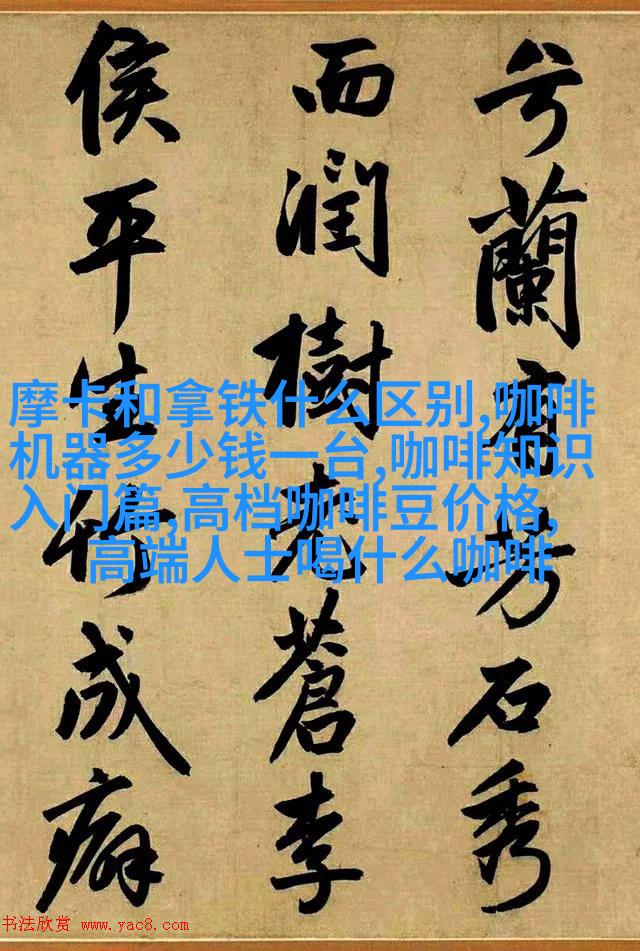 兮蘭有芳石秀
而潤樹老蒼李
侯平生竹成癖
摩卡和拿铁什么区别,咖啡
机器多少钱一台,咖啡知识
入门篇,高档咖啡豆价格,
高端人士喝什么咖啡
书法欣赏 www.yac8.com